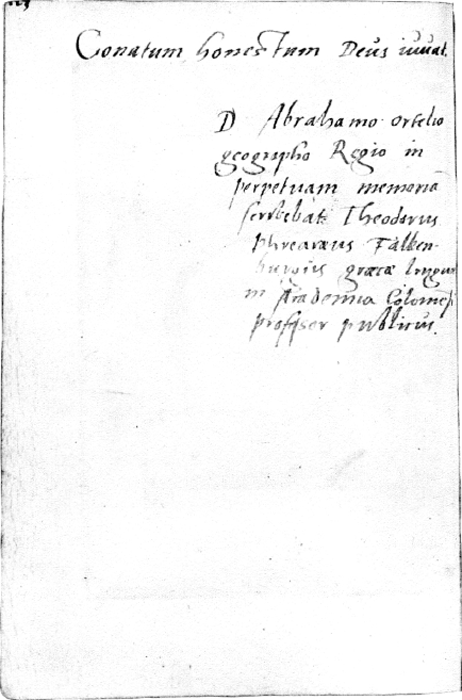 Conatum honestum Deus iuuat.
D Abrahamo Ortelio
geographo Regio in
perpetuam memoriã
scribebat Theodorus
Phraearaeus Falken-
burgius graecae linguae
in Academia Colonień
professer publicus.